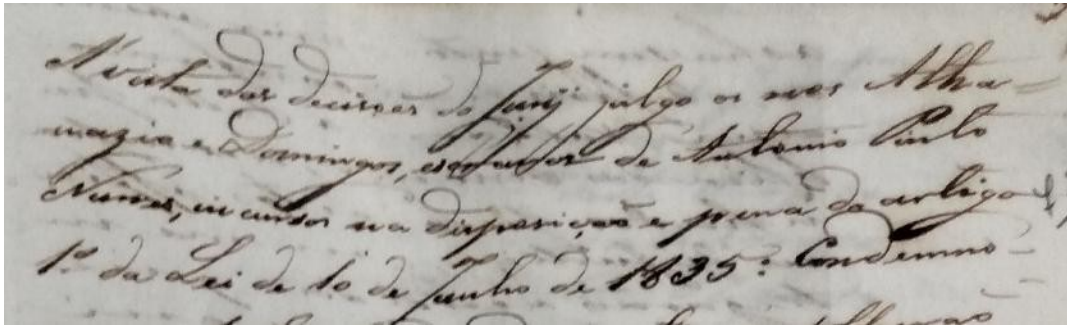 A vista das decisões do Jury julgo os reos Atha-
nazio e Domingos, escravos de Antonio Pinto
Nunes, incursos na disposição e pena do artigo
1º da Lei de 10 de Junho de 1835: Condemno-